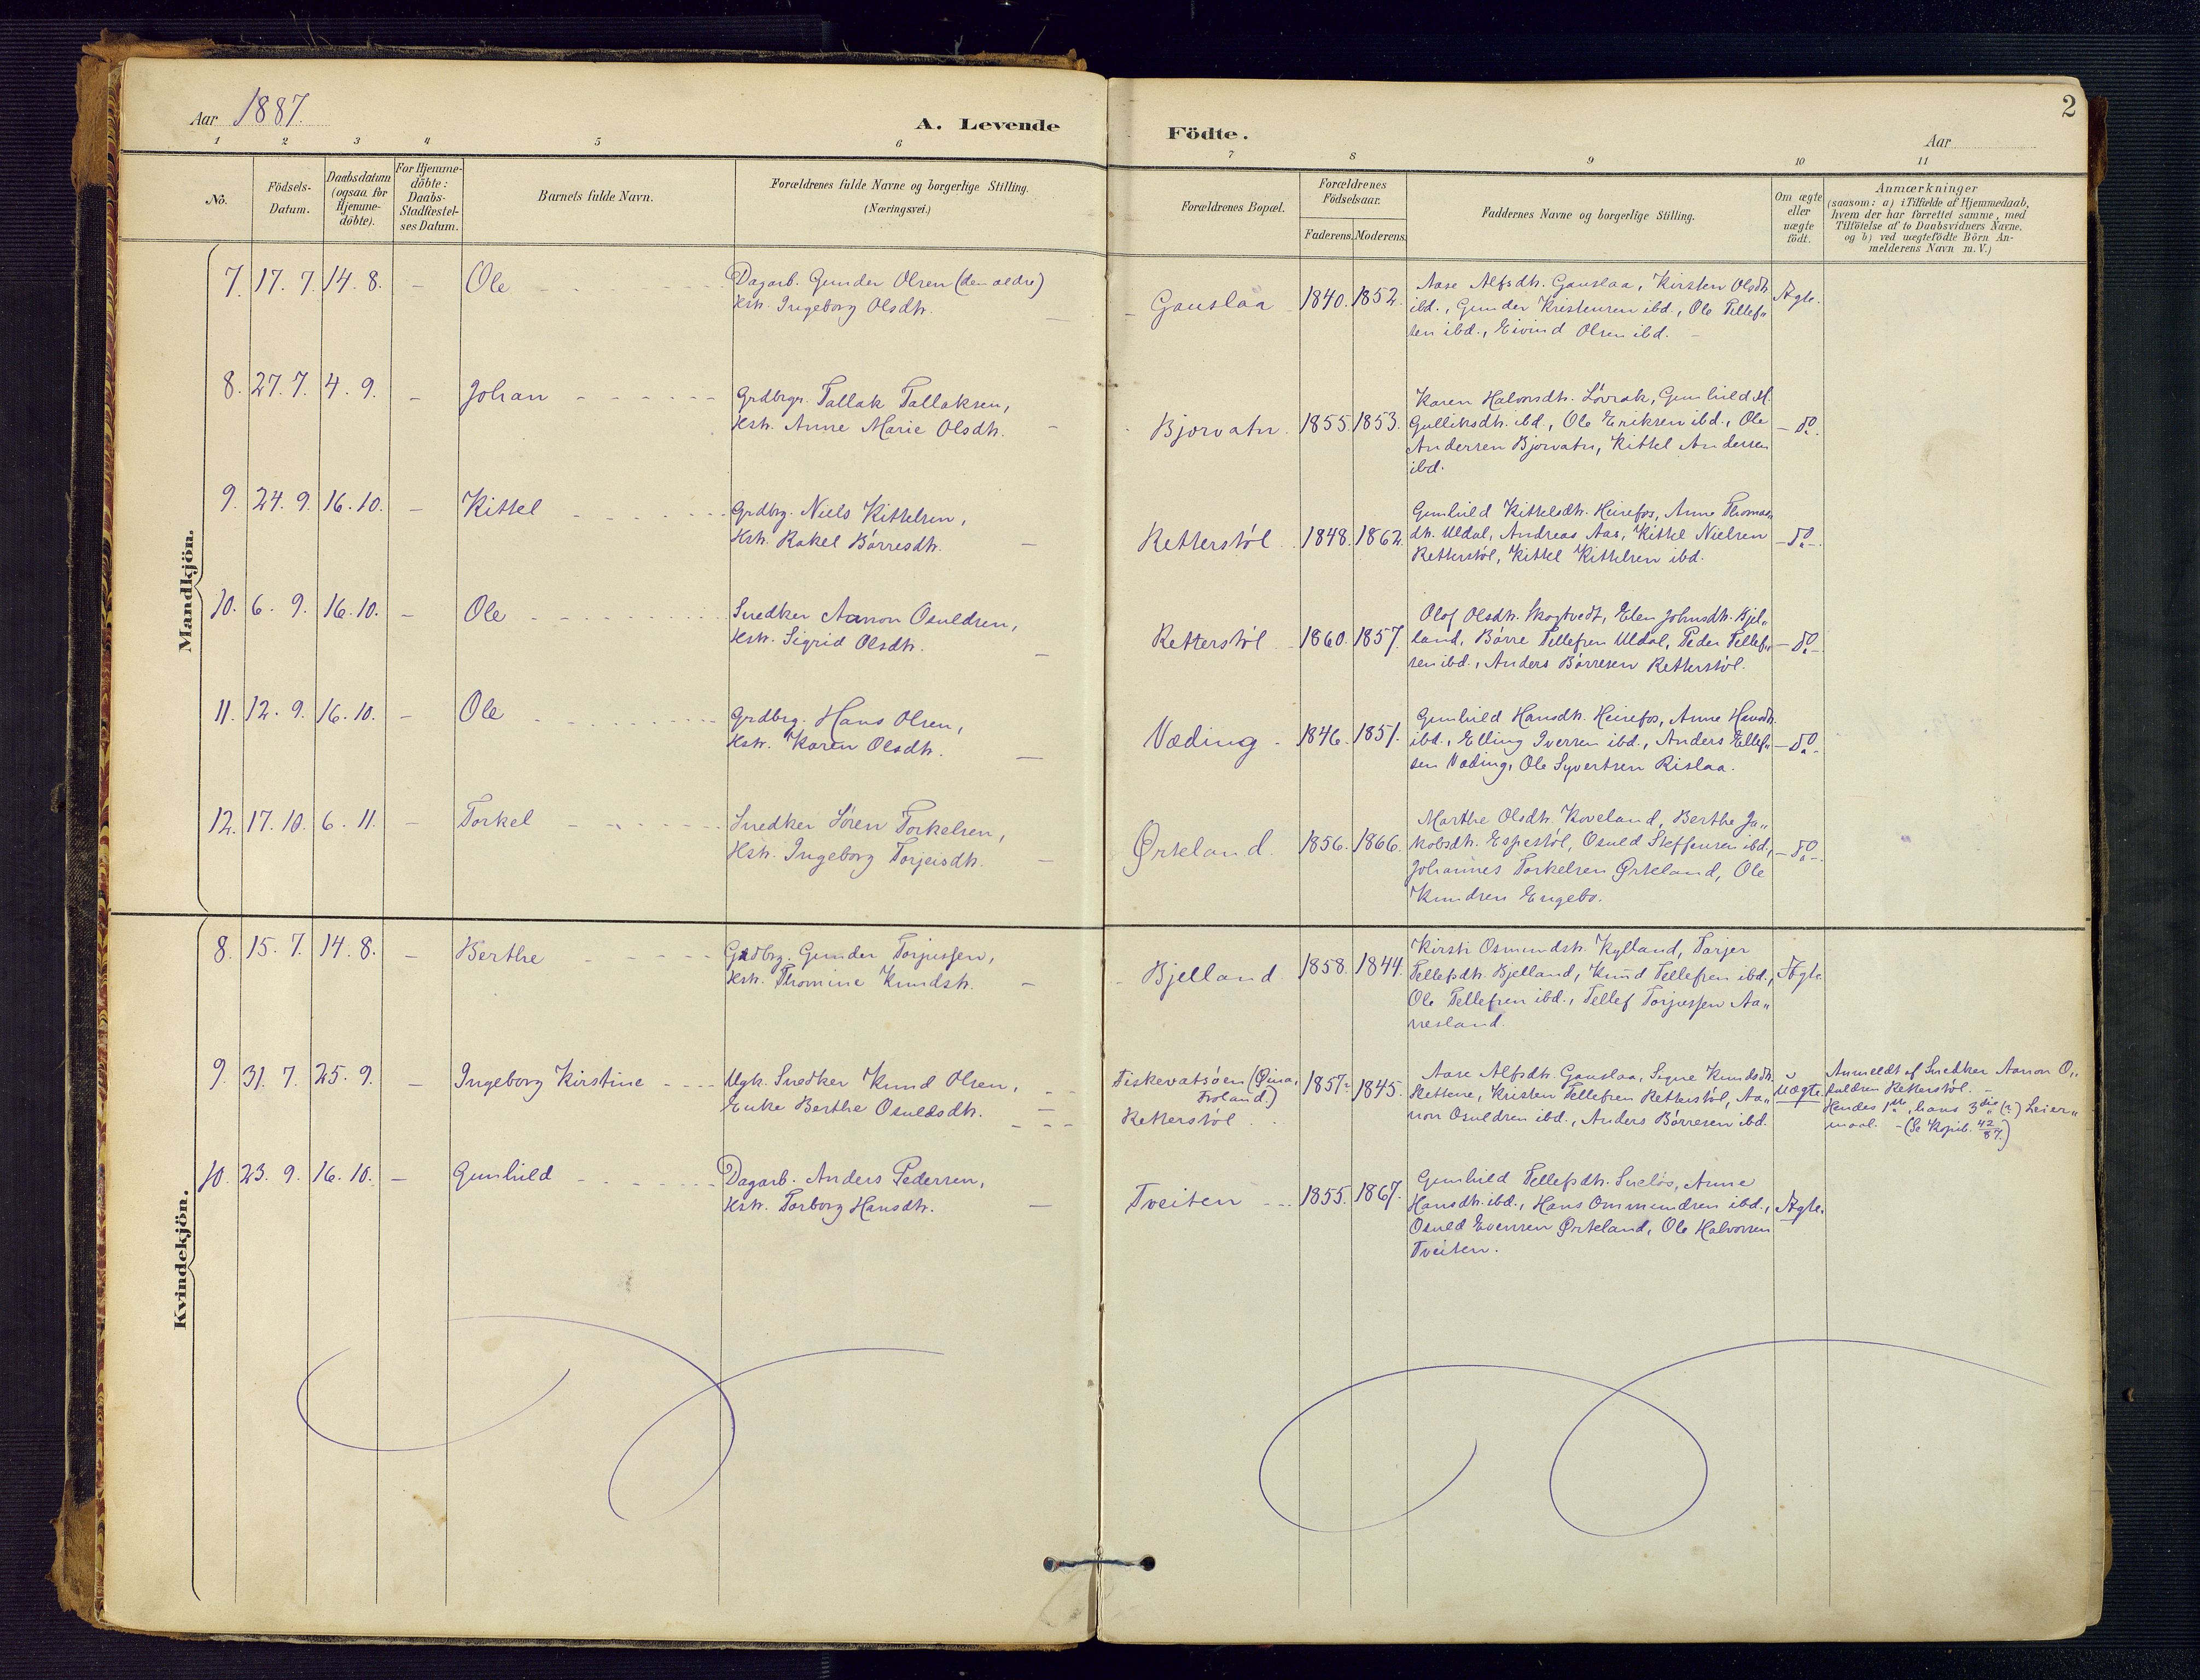 Aar 1887.
A. Levende
Födte.
Aar
2
1 2 3 4 5 6 7 8 9 10 11
No.
Födsels-Datum.
Daabsdatum (ogsaa for Hjemme-döbte).
For Hjemme-döbte: Daabs-Stadfæstel-ses Datum.
Barnets fulde Navn.
Forældrenes fulde Navne og borgerlige Stilling.
(Næringsvei.)
Forældrenes Bopæl.
Forældrenes Födselsaar.
Faderens. Moderens.
Faddernes Navne og borgerlige Stilling.
Om ægte eller uægte födt.
Anmærkninger
(saasom: a) i Tilfælde af Hjemmedaab,
hvem der har forrettet samme, med
Tilföielse af to Daabsvidners Navne.
og b) ved uægtefödte Börn An-
melderens Navn m. V.)
Mandkjön.
7. 17. 7. 14. 8. - Ole
Dagarb. Gunder Olsen (den ældre)
Kstr. Ingeborg Olsdtr.
Gauslaa 1840. 1852.
Aase Alfsdtr. Gauslaa, Kirsten Olsdtr.
ibd., Gunder Kristensen ibd., Ole Tellef„
sen ibd., Eivind Olsen ibd.
Ægte.
8. 27. 7. 4. 9. - Johan
Grdbrgr. Tallak Tallaksen,
Kstr. Anne Marie Olsdtr.
Bjorvatn 1855. 1853.
Karen Halvorsdtr. Lövrak, Gunhild M.
Gulliksdtr. ibd., Ole Eriksen ibd., Ole
Andersen Bjorvatn, Kittel Andersen
ibd.
- do.
9. 24. 9. 16. 10. - Kittel
Grdbrg. Niels Kittelsen,
Kstr. Rakel Börresdtr.
Retterstöl 1848. 1862.
Gunhild Kittelsdtr. Heirefos, Anne Thomas„
dtr. Uldal, Andreas Aas, Kittel Nielsen
Retterstöl, Kittel Kittelsen ibd.
- do. -
10. 6. 9. 16. 10. - Ole
Snedker Aanon Osuldsen,
Kstr. Sigrid Olsdtr.
Retterstöl 1860. 1857.
Olof Olsdtr. Skogtvedt, Elen Johnsdtr. Bjel„
land, Börre Tellefsen Uldal, Peder Tellef„
sen ibd., Anders Börresen Retterstöl.
- do. -
11. 12. 9. 16. 10. - Ole
Grdbrg. Hans Olsen,
Kstr. Karen Olsdtr.
Væding 1846. 1851.
Gunhild Hansdtr. Heirefos, Anne Hansdtr.
ibd., Elling Iversen ibd., Anders Ellef„
sen Væding, Ole Syvertsen Rislaa.
- do. -
12. 17. 10. 6. 11. - Torkel
Snedker Sören Torkelsen,
Kstr. Ingeborg Torjeisdtr.
Örkeland. 1856. 1866.
Marthe Olsdtr. Koveland, Berthe Ja„
kobsdtr. Espestöl, Osuld Steffensen ibd.,
Johannes Torkelsen Örkeland, Ole
Knudsen Engebo.
- do. -
Kvindekjön.
8. 15. 7. 14. 8. - Berthe
Grdbrg. Gunder Torjussen,
Kstr. Thomine Knudstr.
Bjelland 1858. 1844.
Kirsti Osmundstr. Kylland, Torjer
Tellefsdtr. Bjelland, Knud Tellefsen ibd.,
Ole Tellefsen ibd., Tellef Torjussen Aa„
nesland.
Ægte.
9. 31. 7. 25. 9. - Ingeborg Kirstine
Ugk. Snedker Knud Olsen,
Enke Berthe Osuldsdtr.
Fiskevatsöen (Öina,
Froland.)
Retterstöl
1857. 1845.
Aase Alfsdtr. Gauslaa, Signe Knudsdtr.
Rettene, Kristen Tellefsen Retterstöl, Aa„
non Osuldsen ibd., Anders Börresen ibd.
Uægte.
Anmeldt af Snedker Aanon O„
suldsen Retterstöl. -
Hendes 1ste, hans 3die (?) Leier„
maal. - (Se Kopib. 42/87.)
10. 23. 9. 16. 10. - Gunhild
Dagarb. Anders Pedersen,
Kstr. Torborg Hansdtr.
Tveiten 1855. 1867.
Gunhild Tellefsdtr. Suelös, Anne
Hansdtr. ibd., Hans Ommundsen ibd.,
Osuld Evensen Örkeland, Ole Halvorsen
Tveiten.
Ægte.